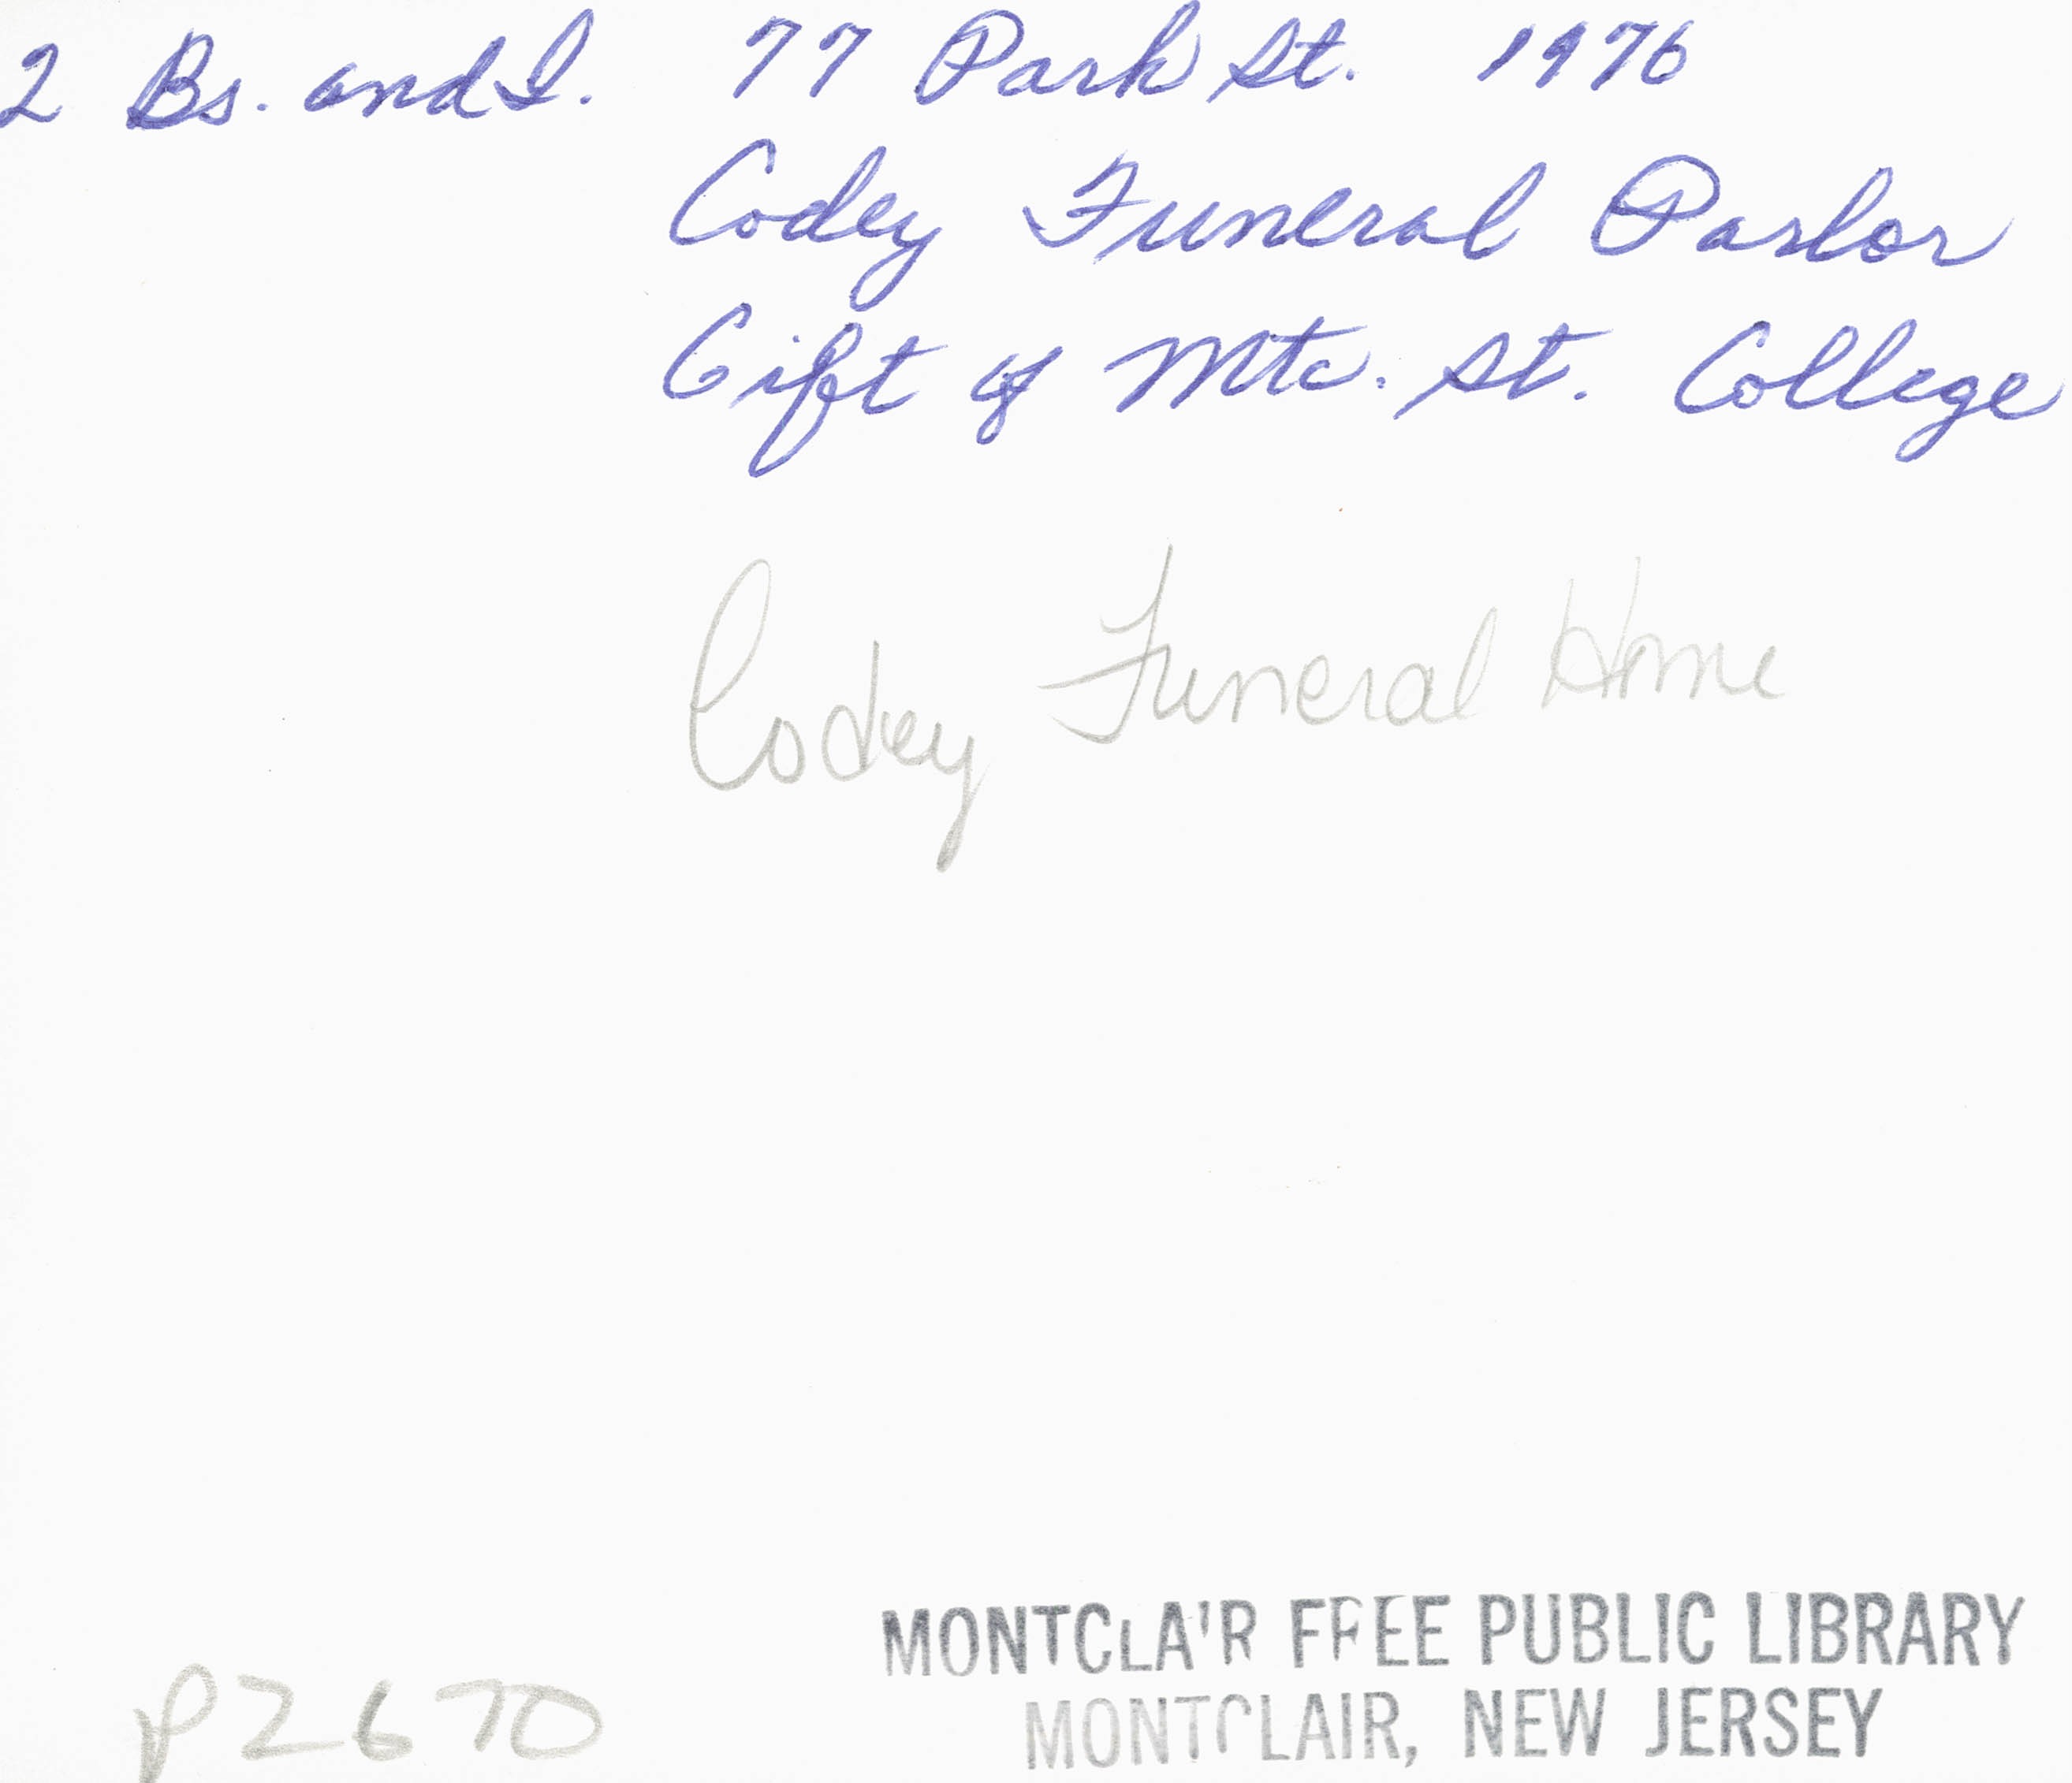 2 Bs. and I. 77 Park St. 1976
Codey Funeral Parlor
Gift of Mtc. St. College
Codey Funeral Home
P2670
MONTCLAIR FREE PUBLIC LIBRARY
MONTCLAIR, NEW JERSEY